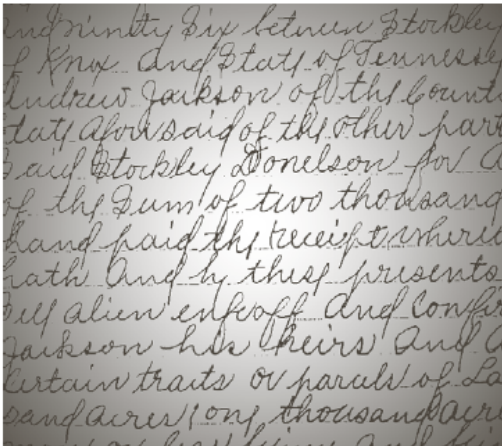 and ninety Six between Stockley
of Knox and State of Tennessee
Andrew Jackson of the Count
State aforesaid of the other part
Said Stockley Donelson for
of the Sum of two thousand
hand paid the receipt where
hath and by these presents
Sell alien enfeoff and Confi
Jackson his heirs and
Certain traits or parcels of La
sand acres, one thousand acr